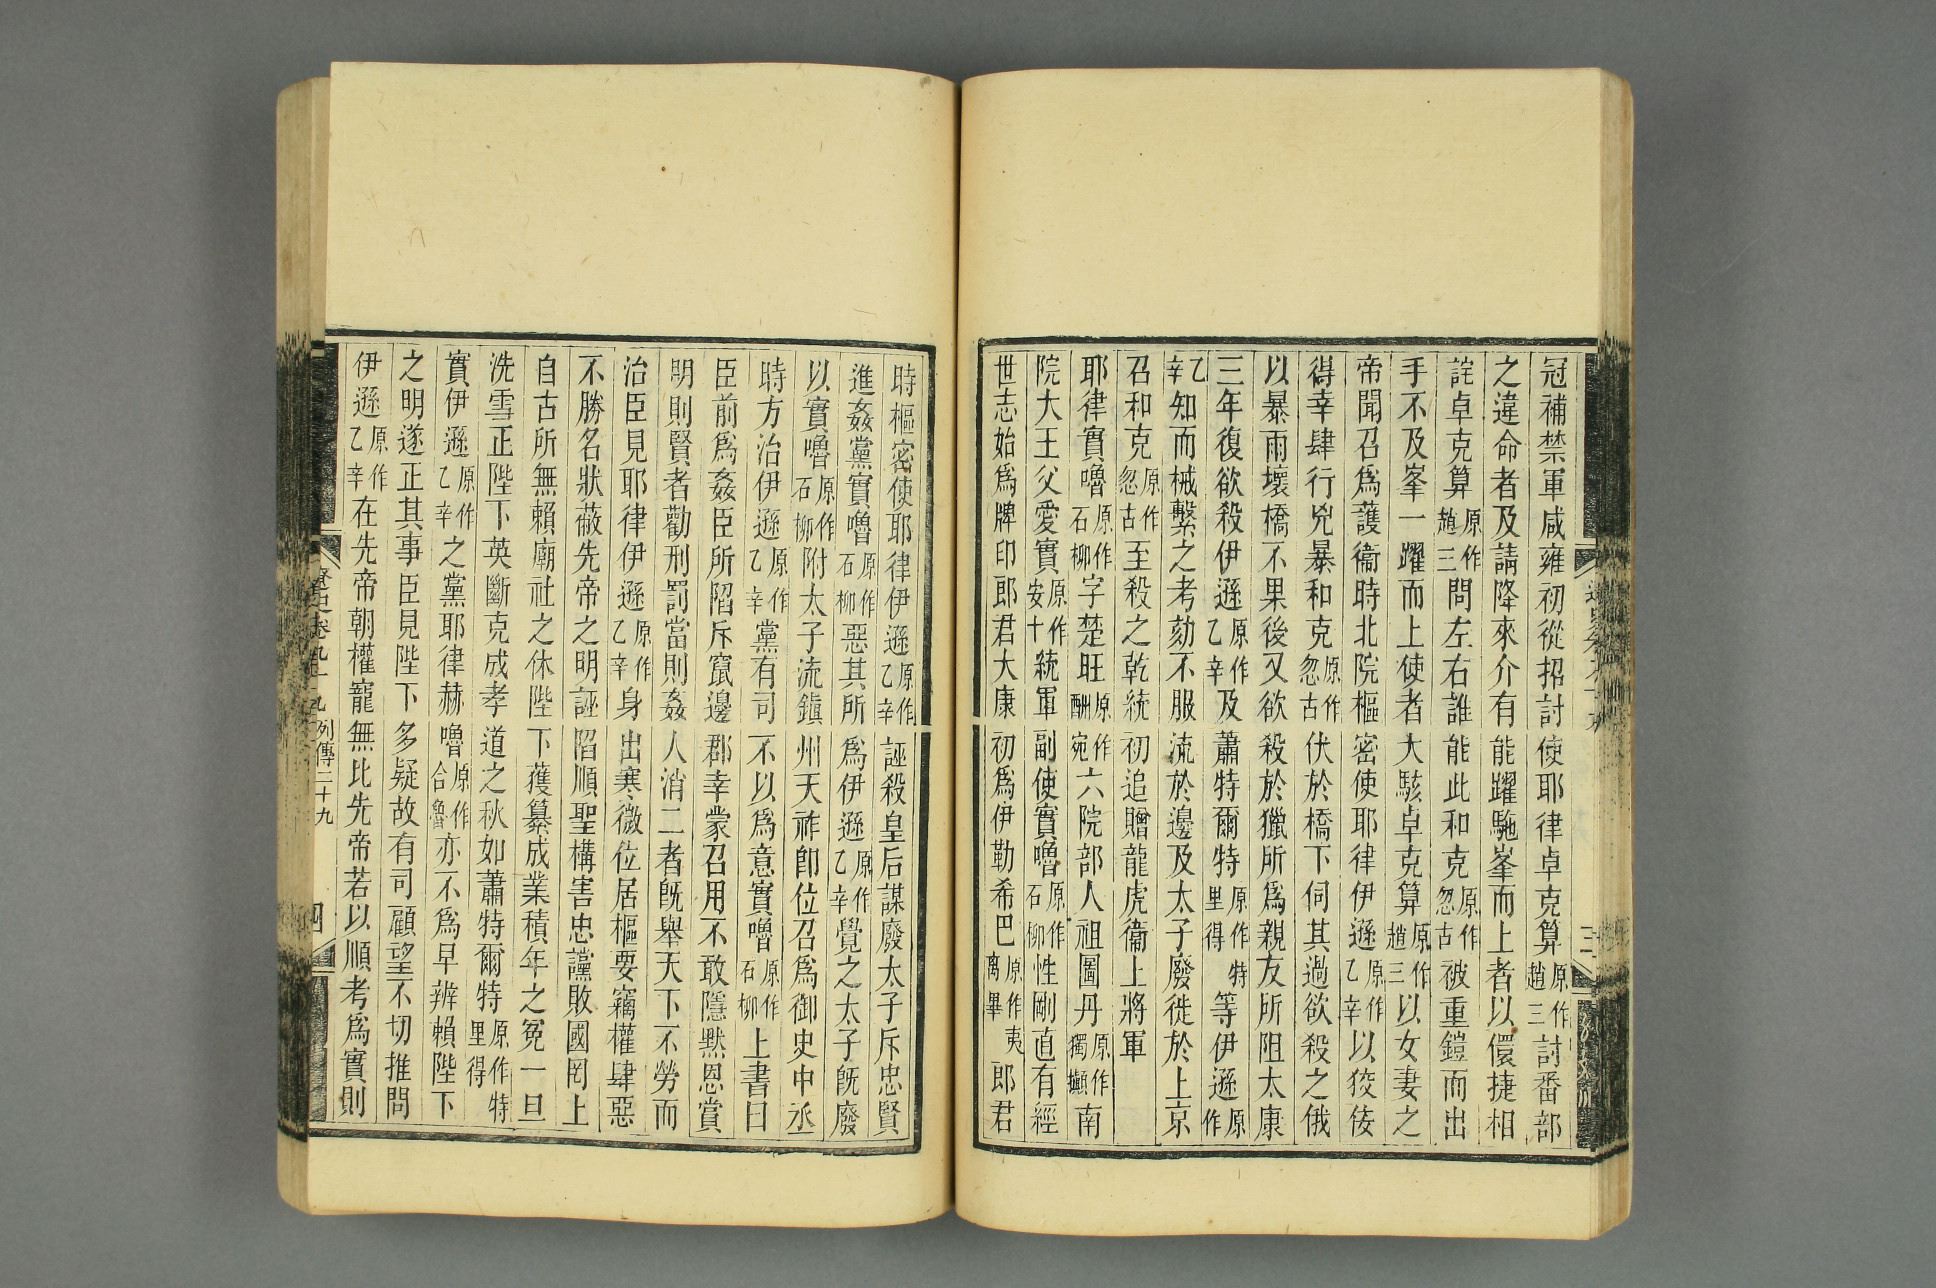 冠補禁軍咸雍初從招討使耶律卓克算原作趙三討番部
之違命者及請降來介有能躍駞峯而上者以儇捷相
詫卓克算原作趙三問左右誰能此和克原作忽古被重鎧而出
手不及峯一躍而上使者大駭卓克算原作趙三以女妻之
帝聞召爲護衞時北院樞密使耶律伊遜原作乙辛以狡佞
得幸肆行兇暴和克原作忽古伏於橋下伺其過欲殺之俄
以暴雨壞橋不果後又欲殺於獵所爲親友所阻太康
三年復欲殺伊遜原作乙辛及蕭特爾特原作特里得等伊遜原作
乙辛知而械繫之考劾不服流於邊及太子廢徙於上京
召和克原作忽古至殺之乾統初追贈龍虎衞上將軍
耶律實嚕原作石柳字楚旺原作酬宛六院部人祖圖丹原作獨攧南
院大王父愛實原作安十統軍副使實嚕原作石柳性剛直有經
世志始爲牌印郎君大康初爲伊勒希巴原作夷离畢郎君
時樞密使耶律伊遜原作乙辛誣殺皇后謀廢太子斥忠賢
進姦黨實嚕原作石柳惡其所爲伊遜原作乙辛覺之太子旣廢
以實嚕原作石柳附太子流鎭州天祚卽位召爲御史中丞
時方治伊遜原作乙辛黨有司不以爲意實嚕原作石柳上書曰
臣前爲姦臣所陷斥竄邊郡幸蒙召用不敢隱默恩賞
明則賢者勸刑罰當則姦人消二者旣舉天下不勞而
治臣見耶律伊遜原作乙辛身出寒微位居樞要竊權肆惡
不勝名狀蔽先帝之明誣陷順聖構害忠讜敗國罔上
自古所無賴廟社之休陛下獲纂成業積年之冤一旦
洗雪正陛下英斷克成孝道之秋如蕭特爾特原作特里得
實伊遜原作乙辛之黨耶律赫嚕原作合魯亦不爲早辨賴陛下
之明遂正其事臣見陛下多疑故有司顧望不切推問
伊遜原作乙辛在先帝朝權寵無比先帝若以順考爲實則
遼史卷九十九 列傳二十九
四